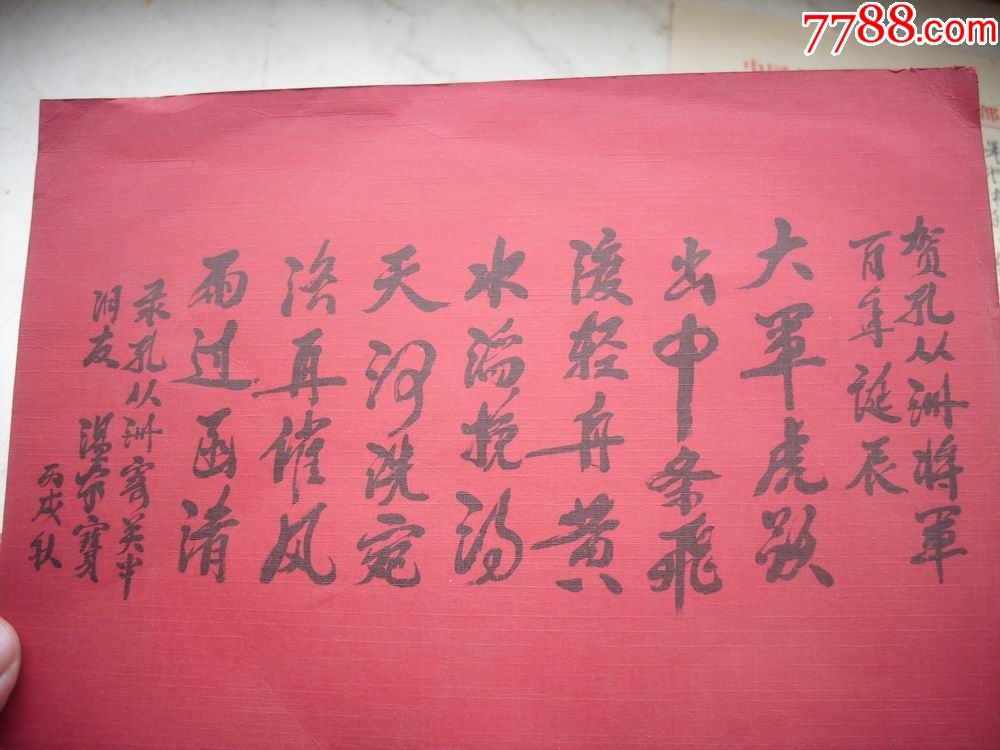 7788.com
贺孔从洲将军
百年诞辰
大军虎
出中条飞
渡轻舟黄
水滔挽得
天河洗宛
洛再催风
雨过函清
录孔从洲寄关中
旧友 温家宝
丙戌秋